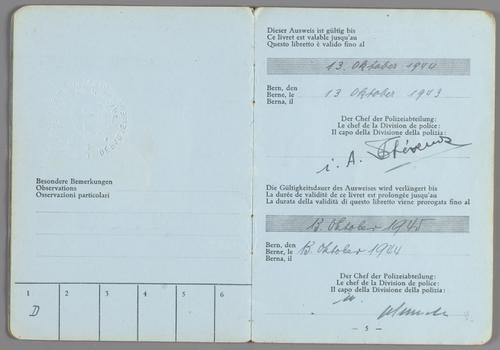 Besondere Bemerkungen
Observations
Osservazioni particolari
1 2 3 4 5 6
D
Dieser Ausweis ist gültig bis
Ce livret est valable jusqu'au
Questo libretto è valido fino al
13. Oktober 1944
Bern, den
Berne, le 13 Oktober 1943
Berna, il
Der Chef der Polizeiabteilung:
Le chef de la Division de police:
Il capo della Divisione della polizia:
i. A.
Die Gültigkeitsdauer des Ausweises wird verlängert bis
La durée de validité de ce livret est prolongée jusqu'au
La durata della validità di questo libretto viene prorogata fino al
13. Oktober 1945
Bern, den
Berne, le 13. Oktober 1944
Berna, il
Der Chef der Polizeiabteilung:
Le chef de la Division de police:
Il capo della Divisione della polizia:
— 5 —